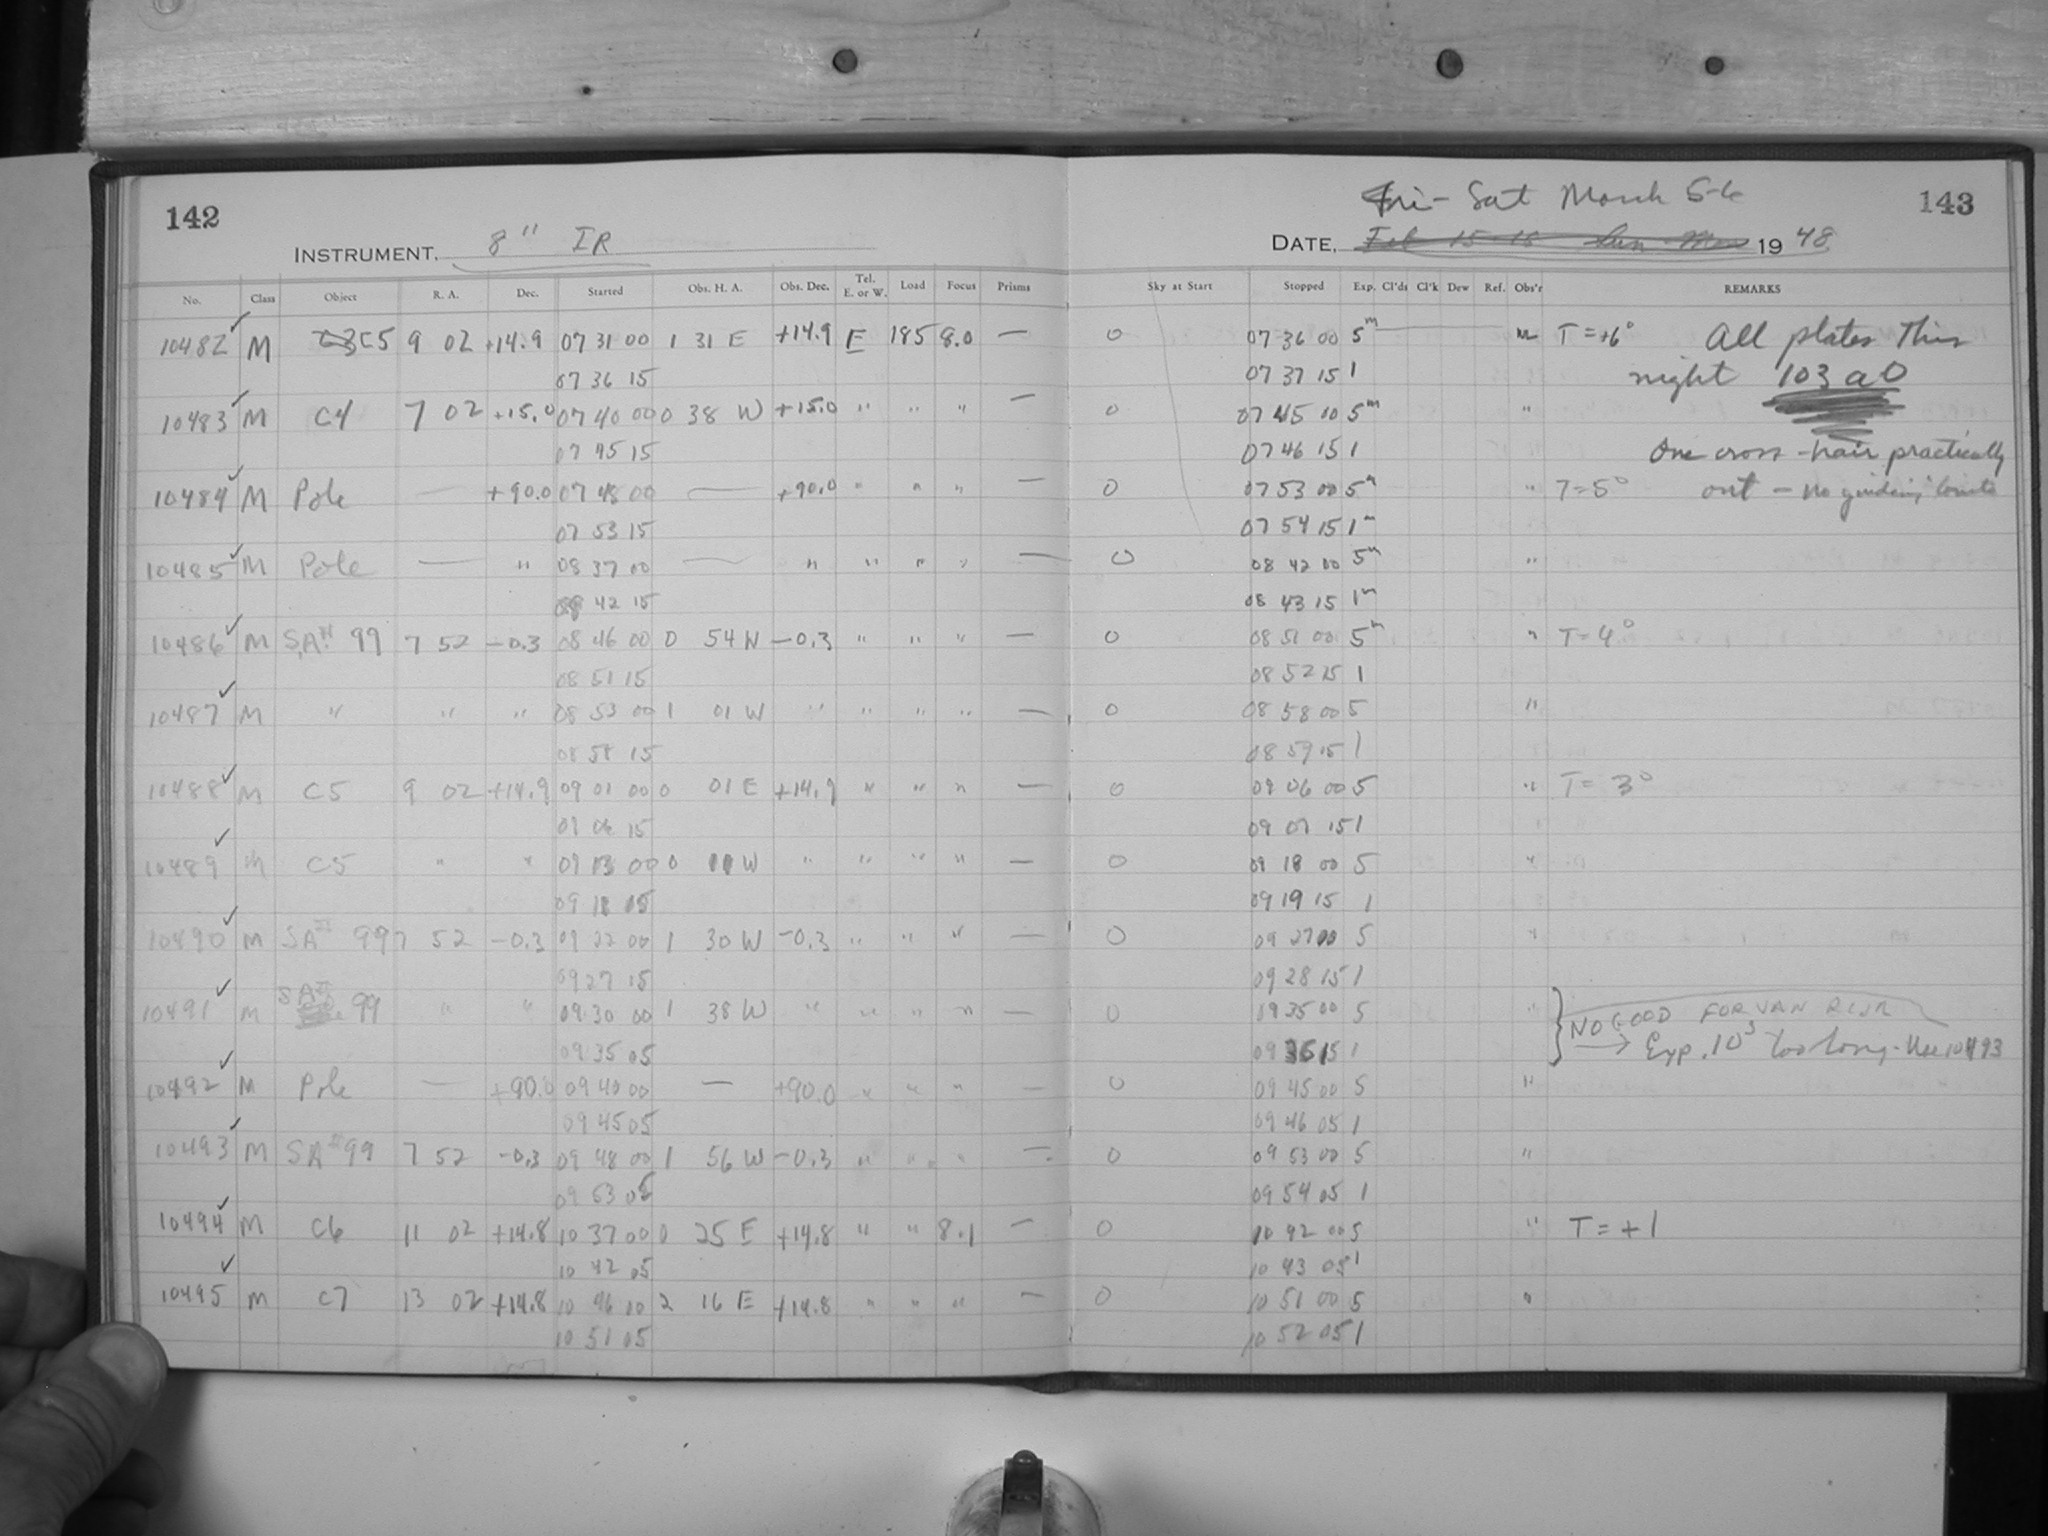 Fri - Sat March 5-6
142 143
INSTRUMENT. 8" IR DATE. Feb 15-16 Sun - Mon 19 48
No. Class Object R. A. Dec. Started Obs. H. A. Obs. Dec. Tel. E. or W. Load Focus Prisms Sky at Start Stopped Exp. Cl'ds Cl'k Dew Ref. Obs'r REMARKS
10482 ✓ M C5 9 02 +14.9 07 31 00 1 31 E +14.9 E 185 8.0 — 0 07 36 00 5m m T = +6° All plates This
07 36 15 07 37 15 1 night 103 a O
10483 ✓ M C4 7 02 +15.0 07 40 00 0 38 W +15.0 " " " — 0 07 45 10 5m "
07 45 15 07 46 15 1 One cross-hair practically
10484 ✓ M Pole — +90.0 07 48 00 — +90.0 " " " — 0 07 53 00 5m " T = 5° out - no guiding
07 53 15 07 54 15 1m
10485 ✓ M Pole — " 08 37 00 — " " " " — 0 08 42 00 5m "
08 42 15 08 43 15 1m
10486 ✓ M SA# 99 7 52 -0.3 08 46 00 0 54 W -0.3 " " " — 0 08 51 00 5m " T = 4°
08 51 15 08 52 15 1
10487 ✓ M " " " 08 53 00 1 01 W " " " " — 0 08 58 00 5 "
08 58 15 08 59 15 1
10488 ✓ M C5 9 02 +14.9 09 01 00 0 01 E +14.9 " " " — 0 09 06 00 5 " T = 3°
09 06 15 09 07 15 1
10489 ✓ M C5 " " 09 13 00 0 11 W " " " " — 0 09 18 00 5 "
09 18 05 09 19 15 1
10490 ✓ M SA# 99 7 52 -0.3 09 22 00 1 30 W -0.3 " " " — 0 09 27 00 5 "
09 27 15 09 28 15 1
10491 ✓ M SA# 99 " " 09 30 00 1 38 W " " " " — 0 09 35 00 5 " NO GOOD FOR VAN RIJN
09 35 05 09 36 15 1 → Exp. 10s too long - Use 10493
10492 ✓ M Pole — +90.0 09 40 00 — +90.0 " " " — 0 09 45 00 5 "
09 45 05 09 46 05 1
10493 ✓ M SA# 99 7 52 -0.3 09 48 00 1 56 W -0.3 " " " — 0 09 53 00 5 "
09 53 05 09 54 05 1
10494 ✓ M C6 11 02 +14.8 10 37 00 0 25 E +14.8 " " 8.1 — 0 10 42 00 5 " T = +1
10 42 05 10 43 05 1
10495 ✓ M C7 13 02 +14.8 10 46 10 2 16 E +14.8 " " " — 0 10 51 00 5 "
10 51 05 10 52 05 1